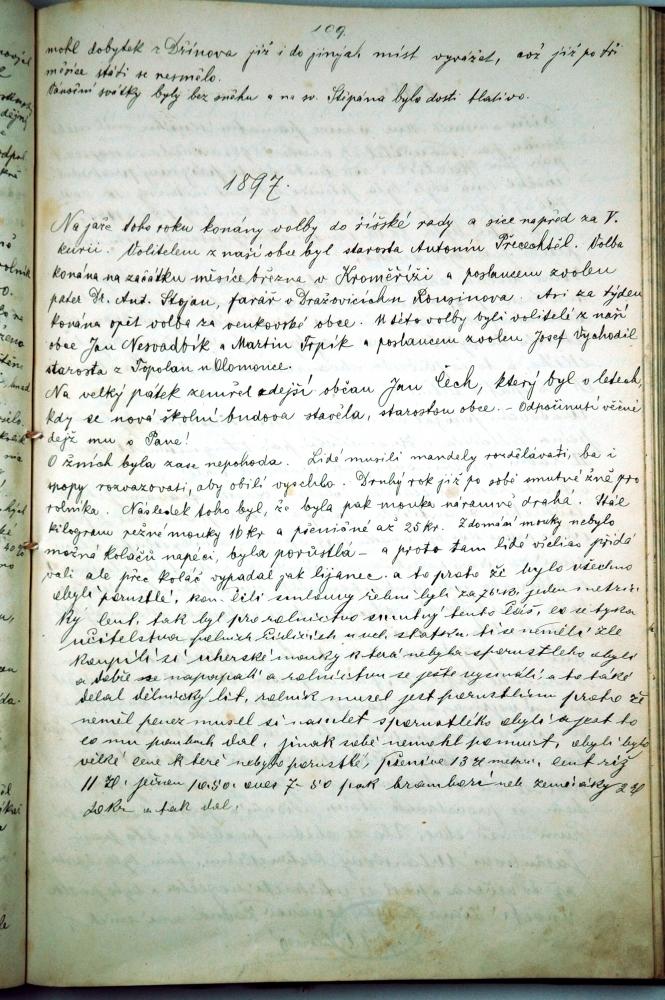 109.
mohl dobytek z Dřínova již i do jiných míst vyvážet, což již po tři
měsíce státi se nesmělo.
Vánoční svátky byly bez sněhu a na sv. Štěpána bylo dosti blativo.
1897.
Na jaře toho roku konány volby do říšské rady a sice napřed za V.
kurii. Volitelem z naší obce byl starosta Antonín Přecechtěl. Volba
konána na začátku měsíce března v Kroměříži a poslancem zvolen
páter Dr. Ant. Stojan, farář v Dražovicích u Rousinova. Asi za týden
konána opět volba za venkovské obce. U této volby byli voliteli z naší
obce Jan Nesvadbík a Martin Trpík a poslancem zvolen Josef Vychodil
starosta z Topolan u Olomouce.
Na velký pátek zemřel zdejší občan Jan Čech, který byl v letech,
kdy se nová školní budova stavěla, starostou obce. – Odpočinutí věčné
dejž mu o Pane!
O žních byla zase nepohoda. Lidé musili mandely rozdělávati, ba i
snopy rozvazovati, aby obilí vyschlo. Druhý rok již po sobě smutné žně pro
rolníka. Následek toho byl, že byla pak mouka náramně drahá. Stál
kilogram režné mouky 16 kr a pšeničné až 25 kr. Z domácí mouky nebylo
možná koláčů napéci, byla porůstlá – a proto tam lidé všelicos přidá
vali ale přec koláč vypadal jak lijanec. a to proto že bylo všechno
obylí porustlé, byli za jeden metric
ký cent, tak byl pro rolnictvo smutný tento čas, co se týka
učitelstva ti se neměli zle
koupili si uherské mouky která nebyla sporustlého obylí
a dobře se napapali a rolnictvu se ješte vysmáli a to také
delal dělnický lit, rolník musel jest porustlinu proto že
neměl penez musel si nasulet sporustlého obylí a jest to
co mu panbuh dal, jinak sobě nemohl pomuct, obylí bylo
vělké cene které nebylo porustlé, pšenice 13 zl metr. cent ríž
11 zl. ječmen 10.50. oves 7-50 pak brambori neb zemčáky 2 zl
a tak dal.